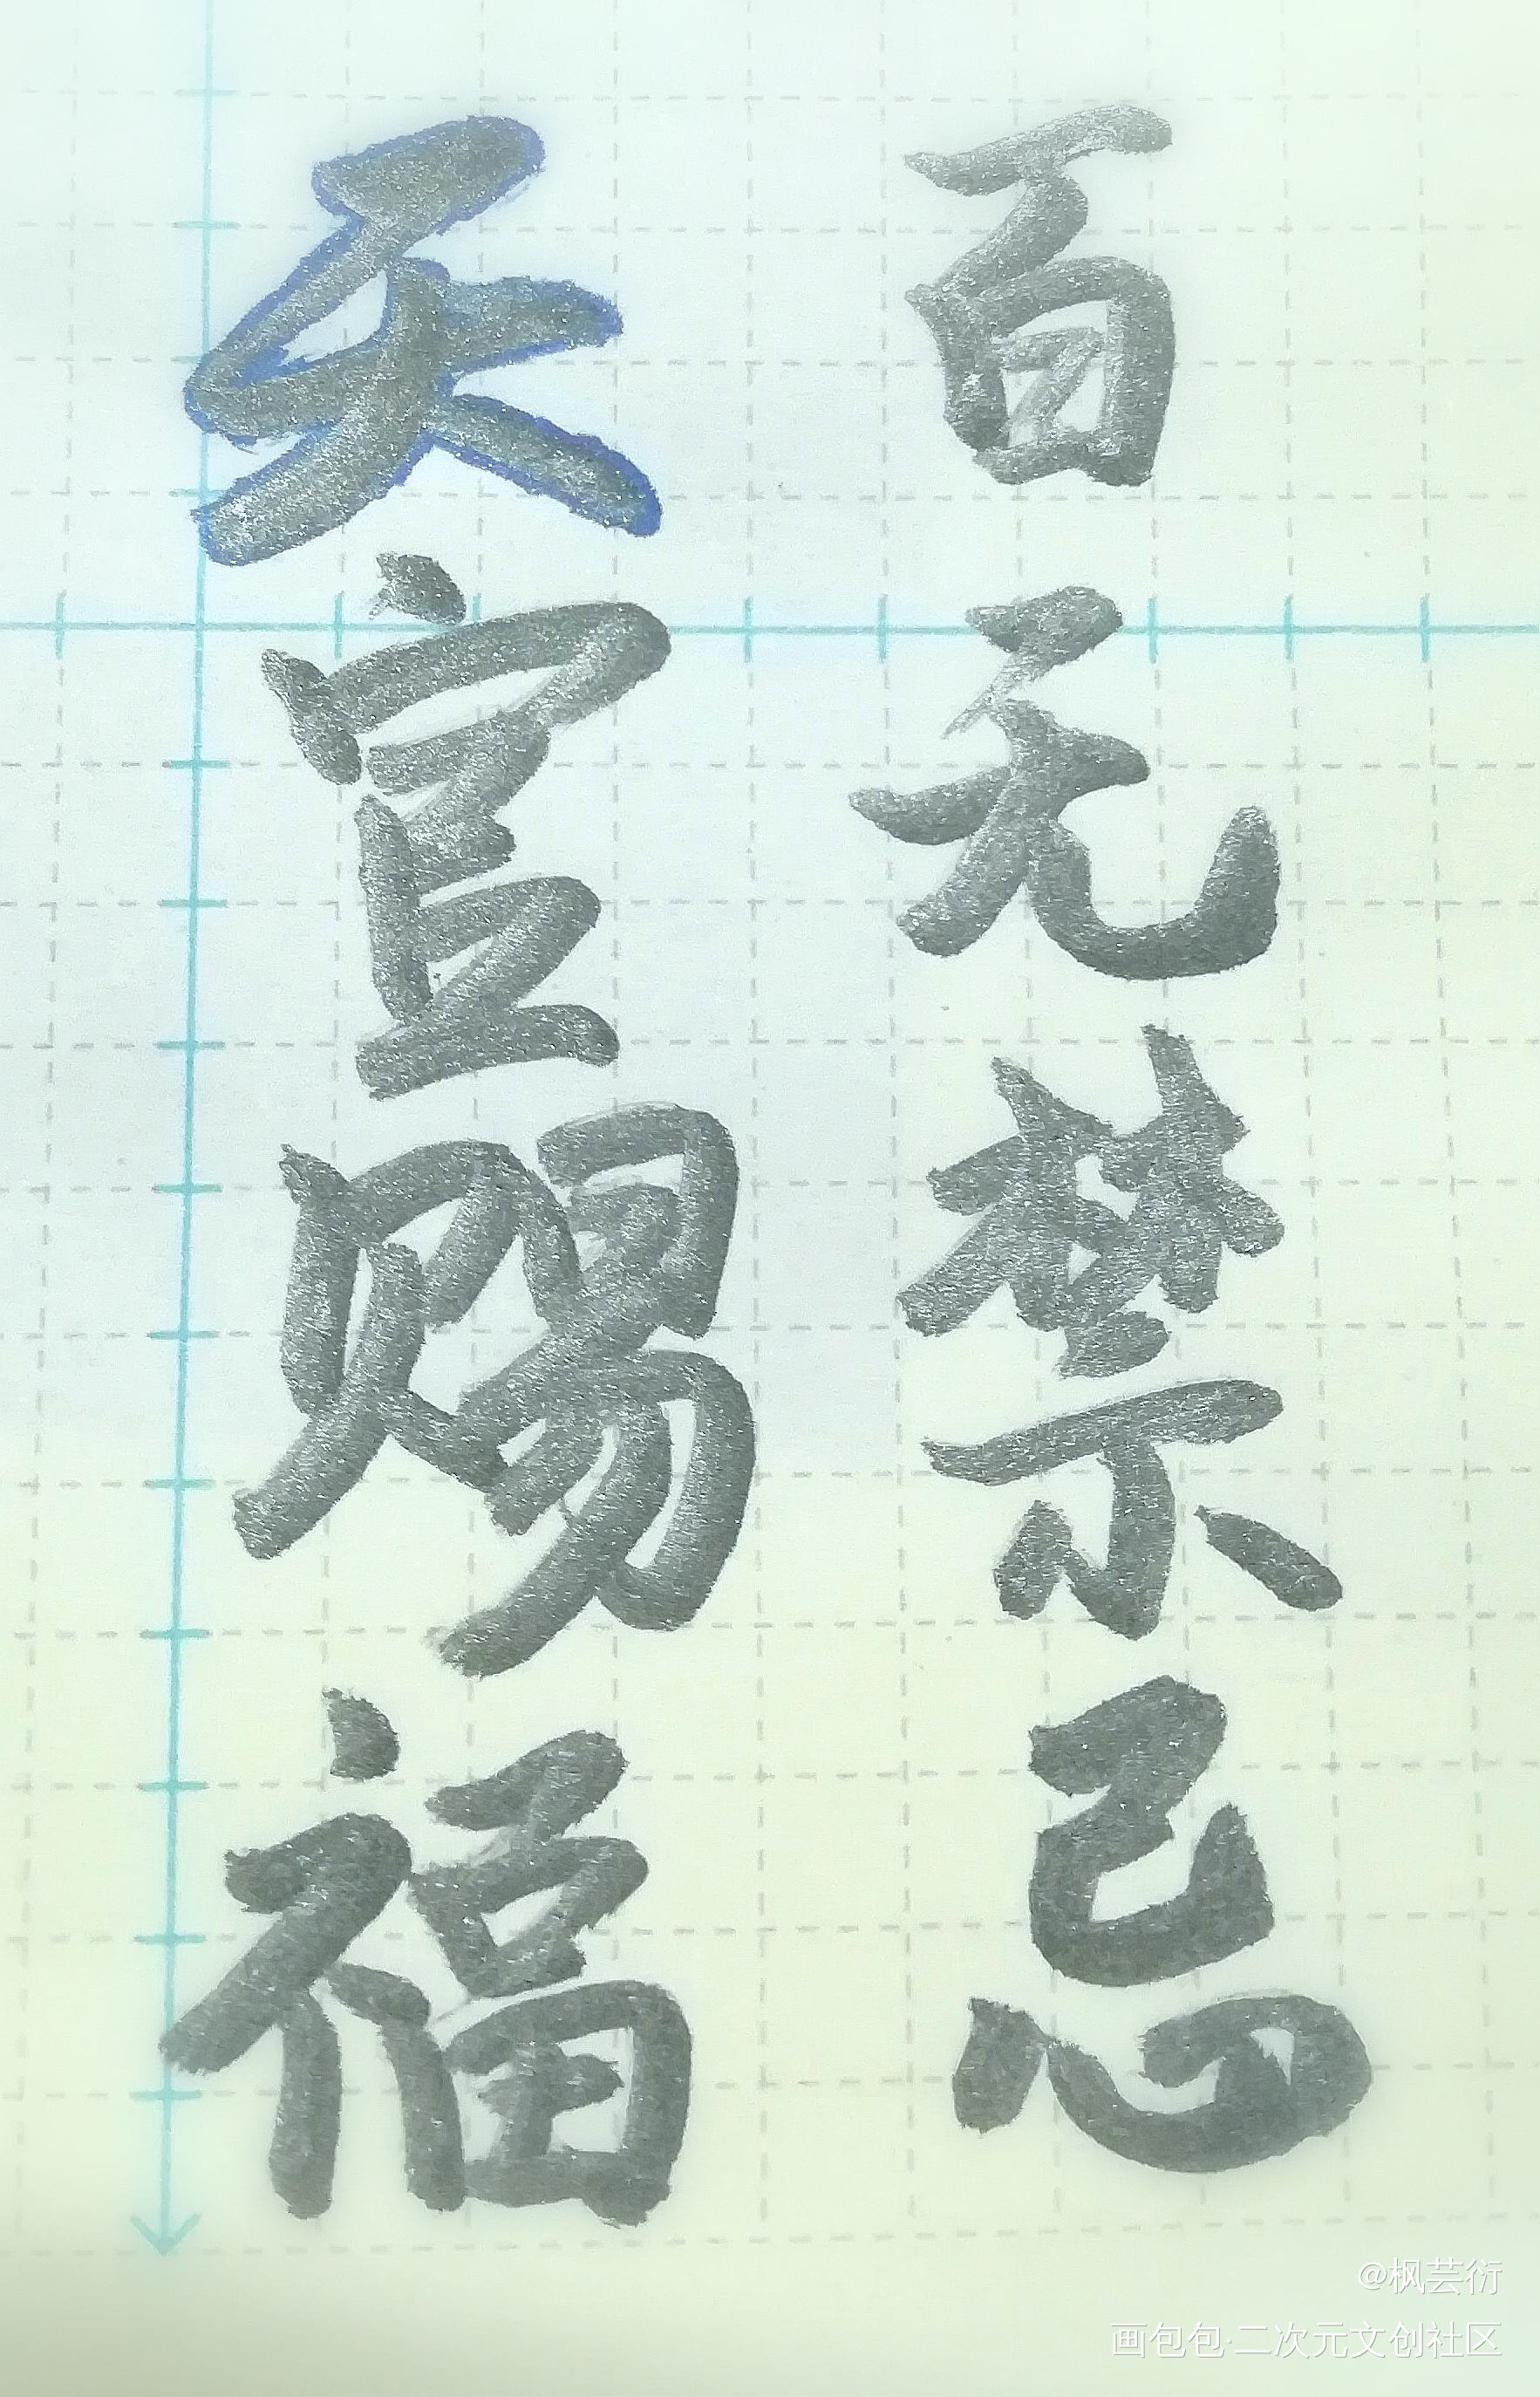 天官赐福
百无禁忌
@枫芸衍
画包包·二次元文创社区